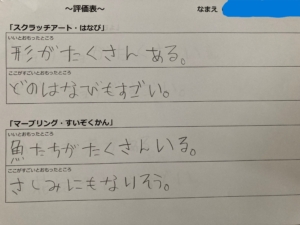 ～評価表～
なまえ
「スクラッチアート・はなび」
いいとおもったところ
形がたくさんある。
ここがすごいとおもったところ
どのはなびもすごい。
「マーブリング・すいぞくかん」
いいとおもったところ
魚たちがたくさんいる。
ここがすごいとおもったところ
さしみにもなりそう。